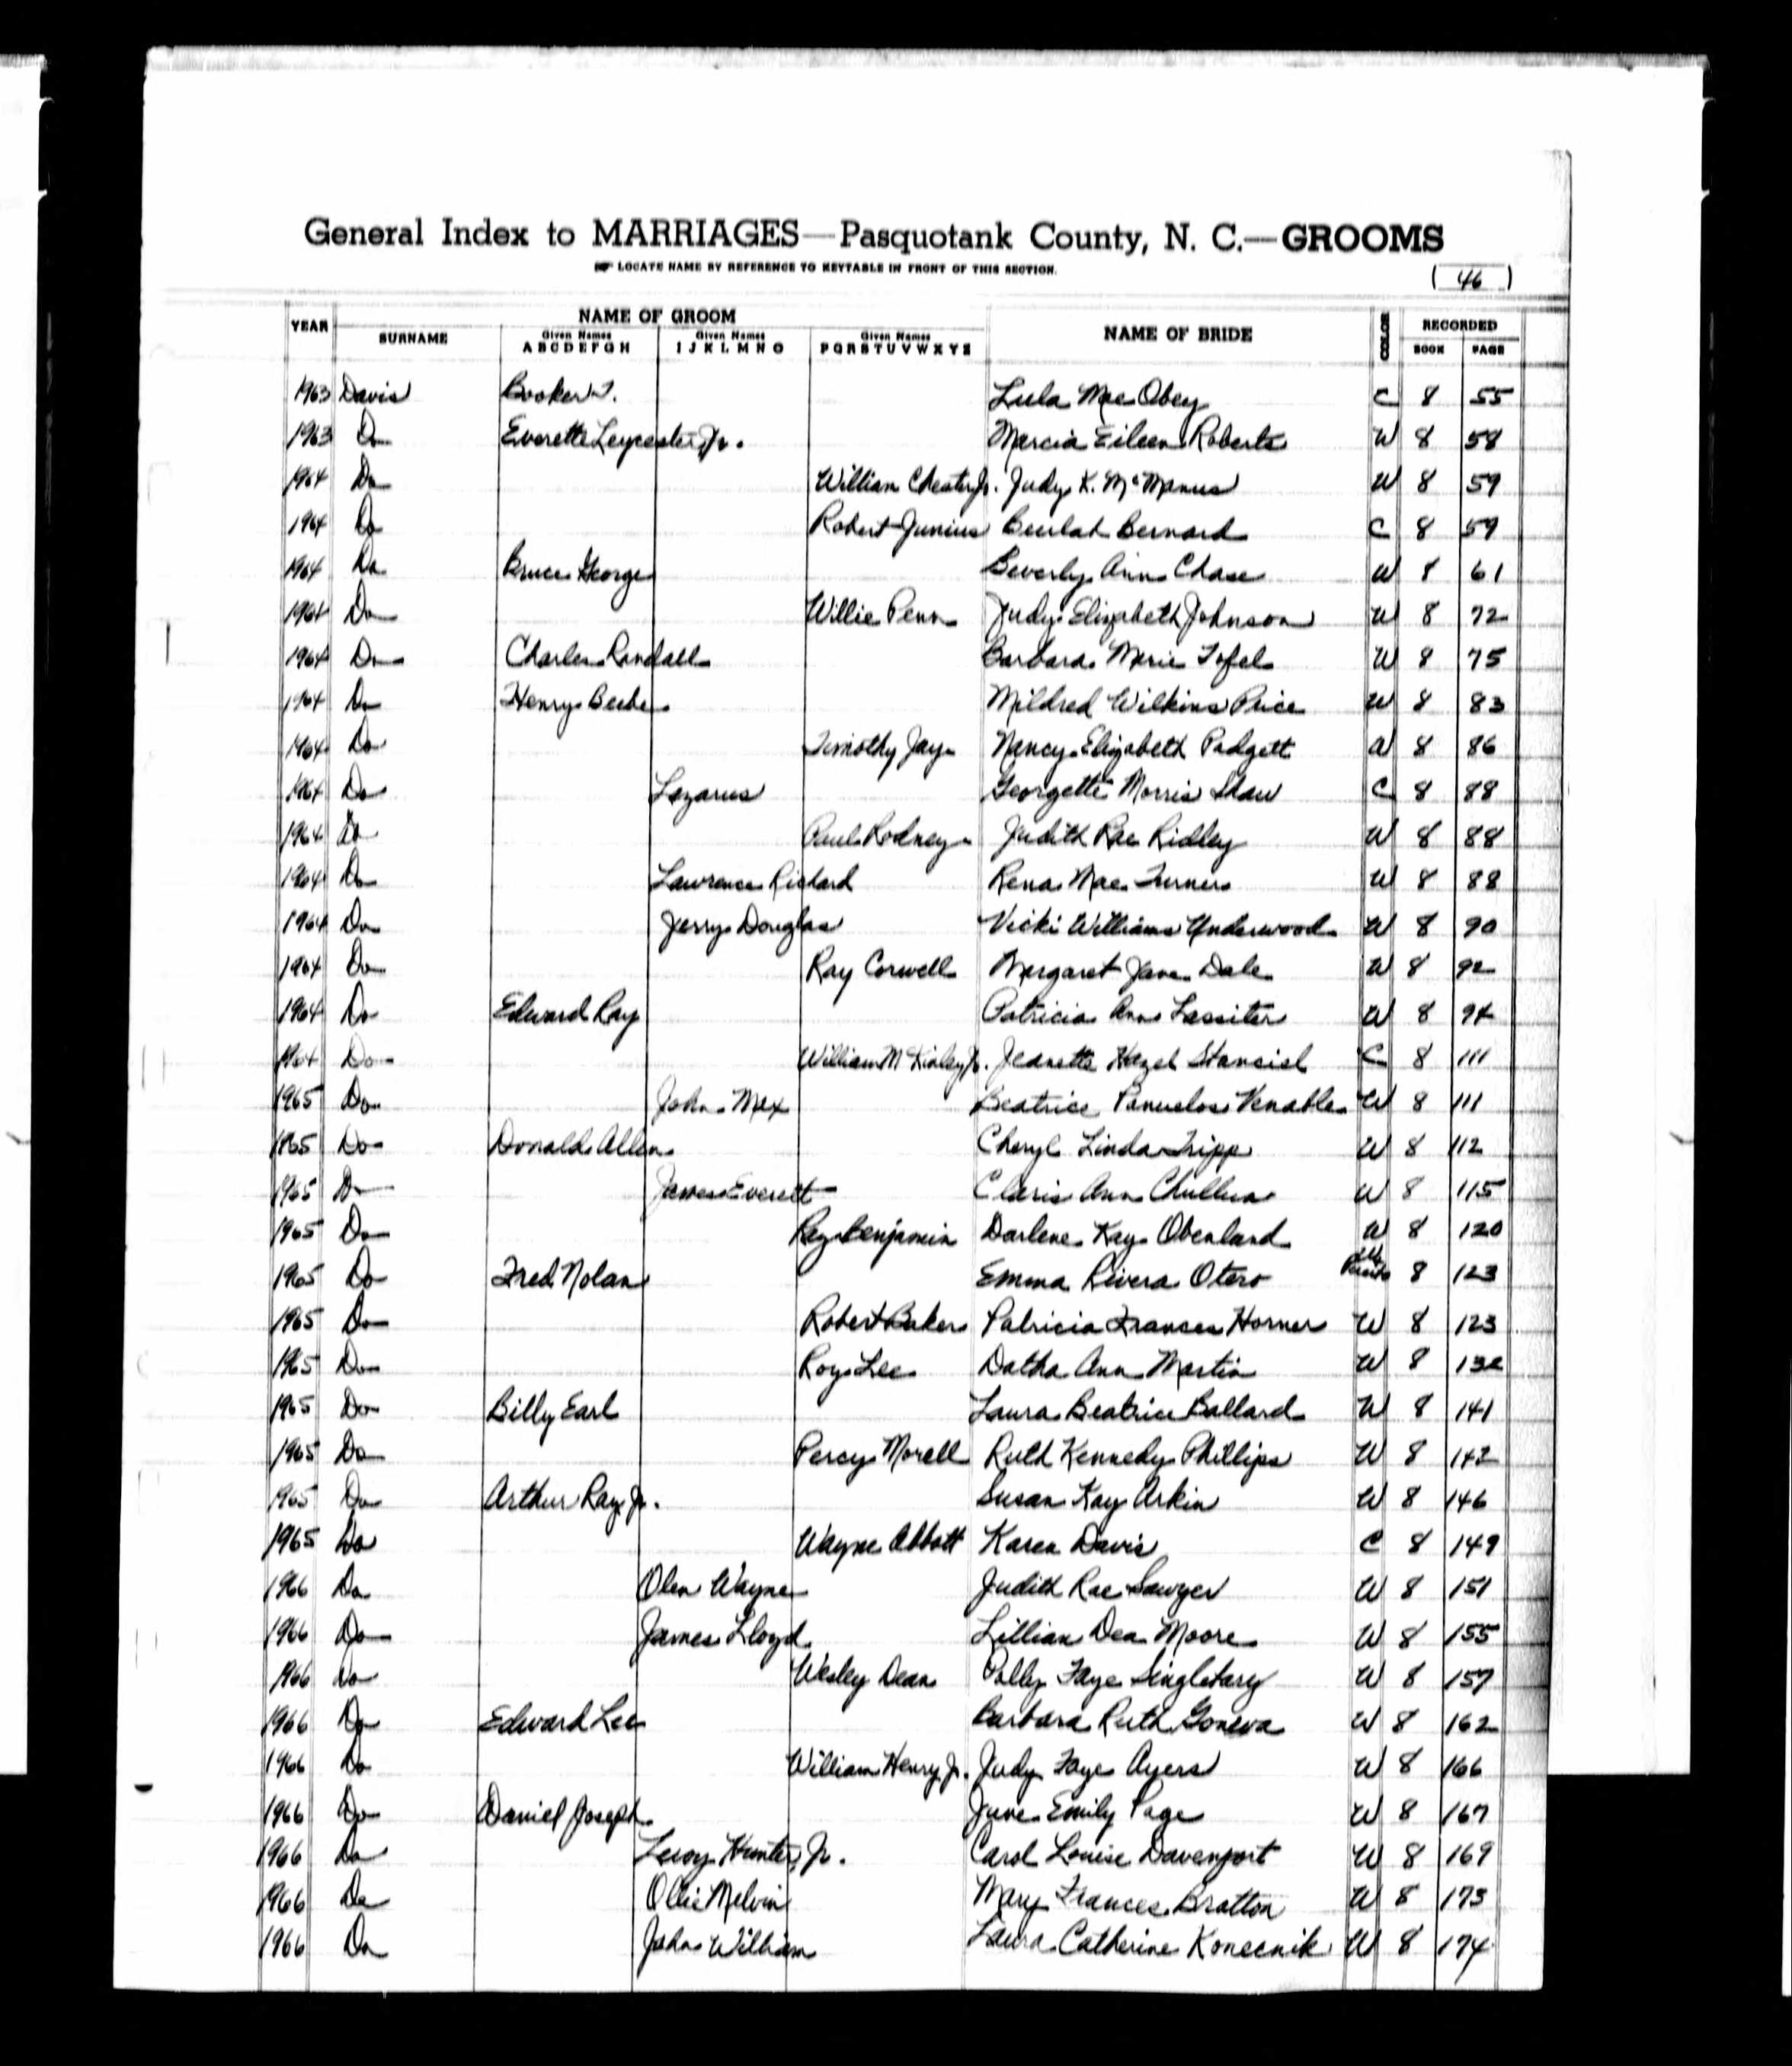 General Index to MARRIAGES—Pasquotank County, N. C.—GROOMS
LOCATE NAME BY REFERENCE TO KEYTABLE IN FRONT OF THIS SECTION.
( 46 )
YEAR NAME OF GROOM NAME OF BRIDE COLOR RECORDED
SURNAME Given Names A B C D E F G H Given Names I J K L M N O Given Names P Q R S T U V W X Y Z BOOK PAGE
1963 Davis Booker T. Lula Mae Obey C 8 55
1963 Do Everette Leycester, Jr. Marcia Eileen Roberts W 8 58
1964 Do William Chester Jr. Judy K. McManus W 8 59
1964 Do Robert Junius Beulah Bernard C 8 59
1964 Do Bruce George Beverly Ann Chase W 8 61
1964 Do Willie Penn Judy Elizabeth Johnson W 8 72
1964 Do Charles Randall Barbara Marie Tofel W 8 75
1964 Do Henry Mildred Wilkins Price W 8 83
1964 Do Timothy Jay Nancy Elizabeth Padgett W 8 86
1964 Do Lazarus Georgette Morris Shaw C 8 88
1964 Do Paul Rodney Judith Rae Ridley W 8 88
1964 Do Lawrence Richard Rena Mae Turner W 8 88
1964 Do Jerry Douglas Vicki Williams Underwood W 8 90
1964 Do Ray Corwell Margaret Jane Dale W 8 92
1964 Do Edward Ray Patricia Ann Lassiter W 8 94
1964 Do William McKinley Jr. Jeanette Hazel Stanciel C 8 111
1965 Do John Mex Beatrice Panuelos Venables W 8 111
1965 Do Donald Allen Cheryl Linda Tripp W 8 112
1965 Do James Everett Claris Ann W 8 115
1965 Do Ray Benjamin Darlene Kay Obenland W 8 120
1965 Do Fred Nolan Emma Rivera Otero 8 123
1965 Do Robert Baker Patricia Frances Horner W 8 123
1965 Do Roy Lee Datha Ann Martin W 8 132
1965 Do Billy Earl Laura Beatrice Ballard W 8 141
1965 Do Percy Morell Ruth Kennedy Phillips W 8 142
1965 Do Arthur Ray, Jr. Susan Kay Arkin W 8 146
1965 Do Wayne Abbott Karen Davis C 8 149
1966 Do Olen Wayne Judith Rae Sawyer W 8 151
1966 Do James Lloyd Lillian Dea Moore W 8 155
1966 Do Wesley Dean Polly Faye Singletary W 8 157
1966 Do Edward Lee Barbara Ruth Goneva W 8 162
1966 Do William Henry, Jr. Judy Faye Ayers W 8 166
1966 Do Daniel Joseph June Emily Page W 8 167
1966 Do Leroy Hunter, Jr. Carol Louise Davenport W 8 169
1966 Do Ollie Melvin Mary Frances Bratton W 8 173
1966 Do John William Laura Catherine Konecnik W 8 174